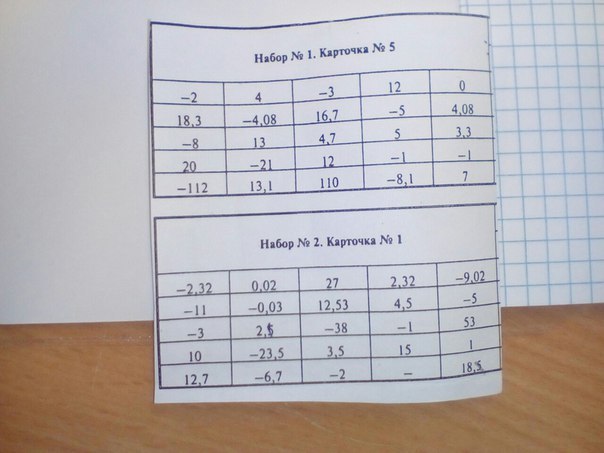 Набор № 1. Карточка № 5
−2 4 −3 12 0
18,3 −4,08 16,7 −5 4,08
−8 13 4,7 5 3,3
20 −21 12 −1 −1
−112 13,1 110 −8,1 7
Набор № 2. Карточка № 1
−2,32 0,02 27 2,32 −9,02
−11 −0,03 12,53 4,5 −5
−3 2,5 −38 −1 53
10 −23,5 3,5 15 1
12,7 −6,7 −2 − 18,5